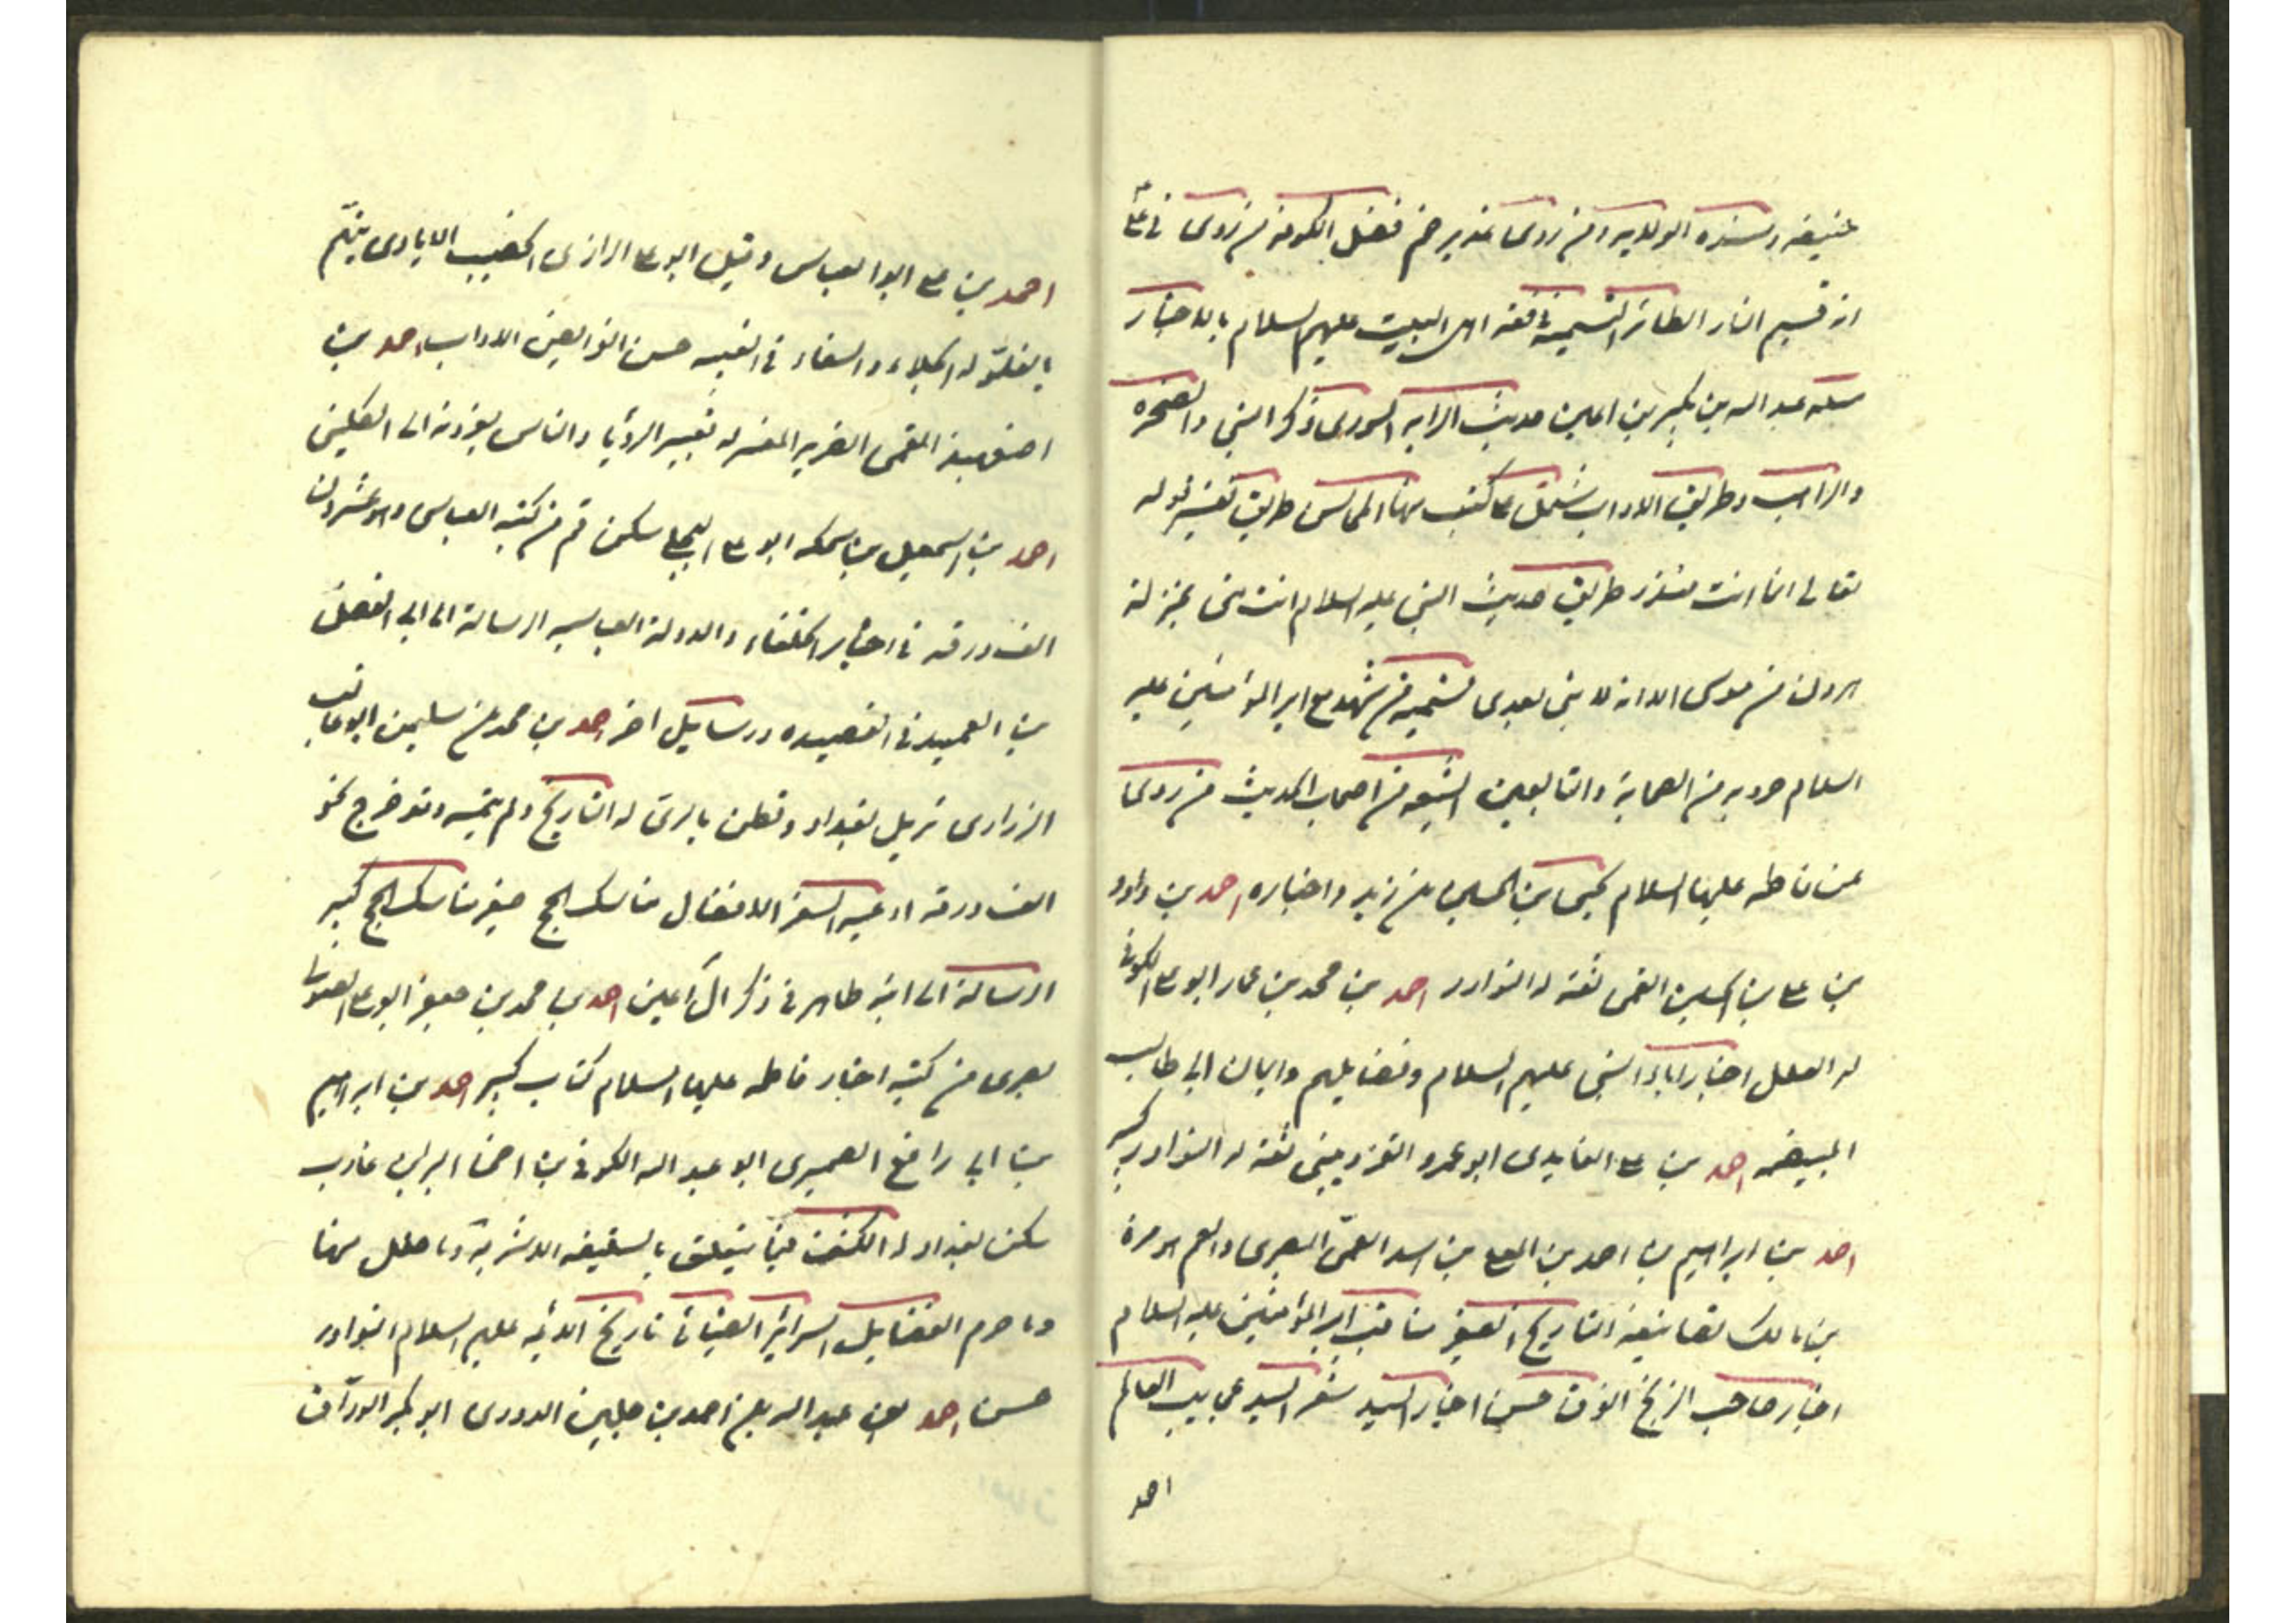 حنيفه ومسنده الولايه ومن روى غدير خم فضل الكوفه من روى في علي
انه قسيم النار الطائر التسمية في فقه اهل البيت عليهم السلام بالاخبار
مسلة عبد الله بن بكير بن اعين حديث الرايه الشورى ذكر النبي والصخره
والراهب وطريق الاداب يشتمل على كتب منها المجالس طريق تفسير قوله
تعالى انما انت منذر طريق حديث النبي عليه السلام انت مني بمنزلة
هرون من موسى الا انه لا نبي بعدى تسمية من شهد مع امير المؤمنين عليه
السلام حروبه من الصحابة والتابعين الشيعه من اصحاب الحديث من روى
عن فاطمه عليها السلام يحيى بن الحسين بن زيد واخباره احمد بن داود
بن علي بن الحسين القمى ثقة له النوادر احمد بن محمد بن عمار ابو علي الكوفى
له العلل اخبار اباء النبي عليهم السلام وفضايلهم وايمان ابي طالب
المبيضه احمد بن علي الفايدى ابو عمرو القزوينى ثقة له النوادر كبير
احمد بن ابراهيم بن احمد بن المعلى بن اسد العمّى البصرى والعم هو مرة
بن مالك تصانيفه التاريخ الصغير مناقب امير المؤمنين عليه السلام
اخبار صاحب الزنج الفرق حسن اخبار السيد شعر السيد عجايب العالم
احمد
احمد بن علي ابو العباس وقيل ابو علي الرازى الخضيب الايادى يتهم
بالغلوّ له الجلاء والشفاء في الغيبه حسن الفرايض الاداب احمد بن
اصفهبذ القمى الضرير المفسر له تعبير الرؤيا والناس يعزونه الى الكليني
احمد بن اسمعيل بن سمكه ابو علي البجلي سكن قم من كتبه العباسى وهو عشرون
الف ورقه في اخبار الخلفاء والدولة العباسيه الرسالة الى ابي الفضل
بن العميد في القصيده ورسايل اخر احمد بن محمد بن سليمن ابو غالب
الزرارى نزيل بغداد وقطن بالرى له التاريخ ولم يتمه وقد خرج نحو
الف ورقه ادعيه السفر الافضال مناسك الحج صغير مناسك الحج كبير
الرسالة الى ابنه طاهر في ذكر آل اعين احمد بن محمد بن جعفر ابو علي الصولى
بصرى من كتبه اخبار فاطمه عليها السلام كتاب كبير احمد بن ابراهيم
بن ابي رافع الصميرى ابو عبد الله الكوفى بن اخى البراء بن عازب
سكن بغداد له الكشف فيما يتعلق بالسقيفه الاشربة وما حلل منها
وما حرم الفضايل السرائر الضيائى تاريخ الائمه عليهم السلام النوادر
حسن احمد بن عبد الله بن احمد بن جلين الدورى ابو بكر الورّاق